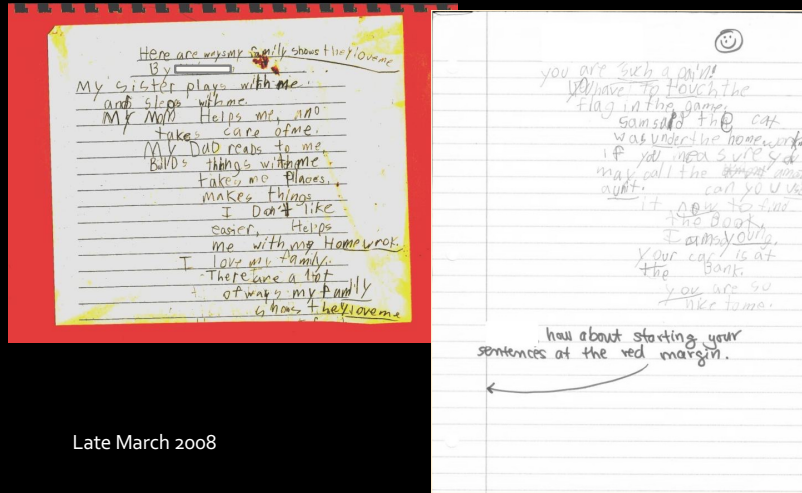 Here are ways my family shows they love me
By
My sister plays with me.
and sleps with me.
My Mom Helps me, and
takes care of me.
My DaD reaDs to me,
BuilDs things with me
takes me Places,
makes things
I Don't like
easier, Helps
me with my Homewrok.
I love my family.
There are a lot
of ways my family
shows they love me
you are such a pain!
You have to touch the
flag in the game.
Sam said the cat
was under the homework
if you measure you
may call the
aunt. can you use
it now to find
the Book,
I am so young.
Your car is at
the Bank.
you are so
nice to me.
how about starting your
sentences at the red margin.
Late March 2008